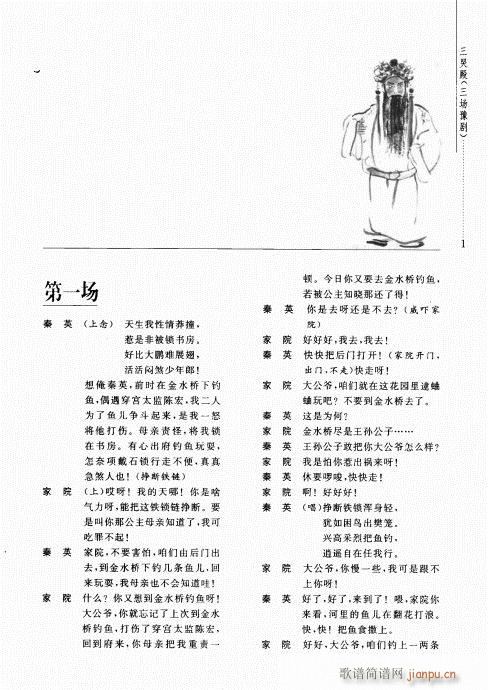 三哭殿(三场豫剧)
1
第一场
秦 英 (上念) 天生我性情莽撞,
惹是非被锁书房。
好比大鹏难展翅,
活活闷煞少年郎!
想俺秦英,前时在金水桥下钓
鱼,偶遇穿宫太监陈宏,我二人
为了鱼儿争斗起来,是我一怒
将他打伤。母亲责怪,将我锁
在书房。有心出府钓鱼玩耍,
怎奈项戴石锁行走不便,真真
急煞人也!(挣断铁链)
家 院 (上)哎呀!我的天哪!你是啥
气力呀,能把这锁链挣断。要
是叫你那公主母亲知道了,我可
吃罪不起!
秦 英 家院,不要害怕,咱们由后门出
去,到金水桥下钓几条鱼儿,回
来玩耍,我母亲也不会知道哇!
家 院 什么?你又想到金水桥钓鱼呀!
大公爷,你就忘记了上次到金水
桥钓鱼,打伤了穿宫太监陈宏,
回到府来,你母亲把我重责一
顿。今日你又要去金水桥钓鱼,
若被公主知晓那还了得!
秦 英 你是去呀还是不去?(威吓家
院)
家 院 好好好,我去,我去!
秦 英 快快把后门打开!(家院开门,
出门,不走)快走呀!
家 院 大公爷,咱们就在这花园里逮蛐
蛐玩吧?不要到金水桥去了。
秦 英 这是为何?
家 院 金水桥尽是王孙公子……
秦 英 王孙公子敢把你大公爷怎么样?
家 院 我是怕你惹出祸来呀!
秦 英 休要啰唆,快快走!
家 院 啊!好好好!
秦 英 (唱)挣断铁锁浑身轻,
犹如困鸟出樊笼。
兴高采烈把鱼钓,
逍遥自在任我行。
家 院 大公爷,你慢一些,我可是跟不
上你呀!
秦 英 好了,好了,来到了!喂,家院你
来看,河里的鱼儿在翻花打浪。
快,快!把鱼食撒上。
家 院 好好,大公爷,咱们钓上一两条
歌谱简谱网
jianpu.cn